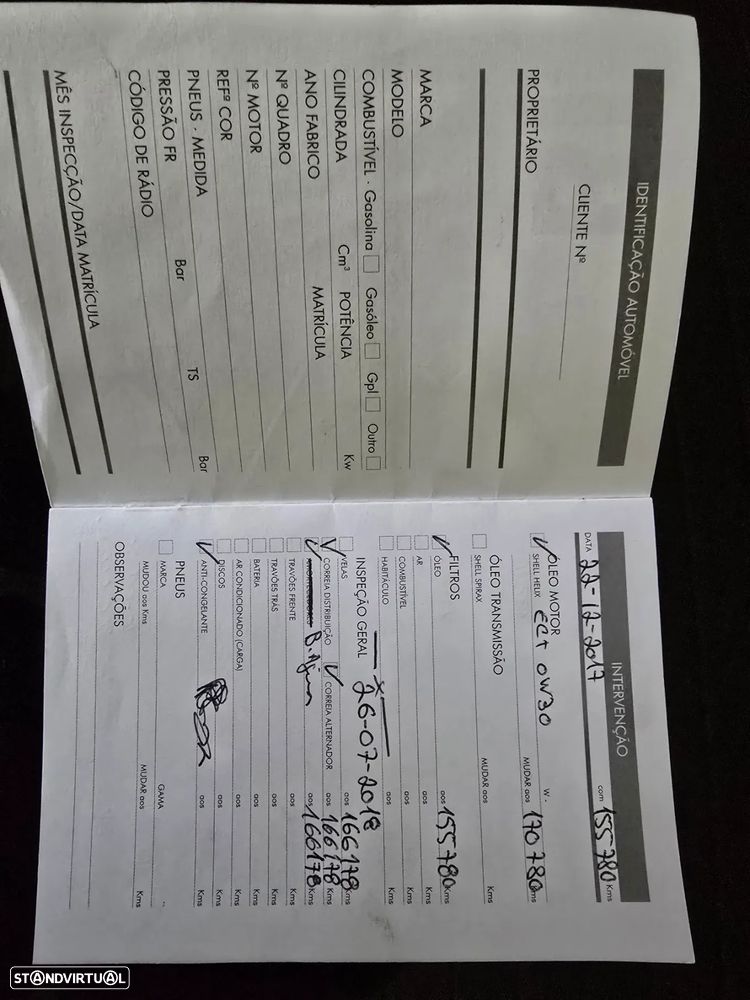 IDENTIFICAÇÃO AUTOMÓVEL
CLIENTE Nº
PROPRIETÁRIO
MARCA
MODELO
COMBUSTÍVEL · Gasolina Gasóleo Gpl Outro
CILINDRADA Cm³ POTÊNCIA Kw
ANO FABRICO MATRÍCULA
Nº QUADRO
Nº MOTOR
REFª COR
PNEUS · MEDIDA TS
PRESSÃO FR Bar Bar
CÓDIGO DE RÁDIO
MÊS INSPECÇÃO/DATA MATRÍCULA
INTERVENÇÃO
DATA 22-12-2017 com 155780 Kms
ÓLEO MOTOR
SHELL HELIX ECT 0W30 W. MUDAR aos 170780 Kms
ÓLEO TRANSMISSÃO
SHELL SPIRAX MUDAR aos Kms
FILTROS
ÓLEO aos 155780 Kms
AR aos Kms
COMBUSTÍVEL aos Kms
HABITÁCULO aos Kms
INSPEÇÃO GERAL 26-07-2018
VELAS aos 166178 Kms
CORREIA DISTRIBUIÇÃO CORREIA ALTERNADOR aos 166178 Kms
AMORTECEDORES B. Água aos 166178 Kms
TRAVÕES FRENTE aos Kms
TRAVÕES TRÁS aos Kms
BATERIA aos Kms
AR CONDICIONADO (CARGA) aos Kms
DISCOS aos Kms
ANTI-CONGELANTE aos Kms
PNEUS
MARCA GAMA
MUDOU aos Kms MUDAR aos Kms
OBSERVAÇÕES
STANDVIRTUAL